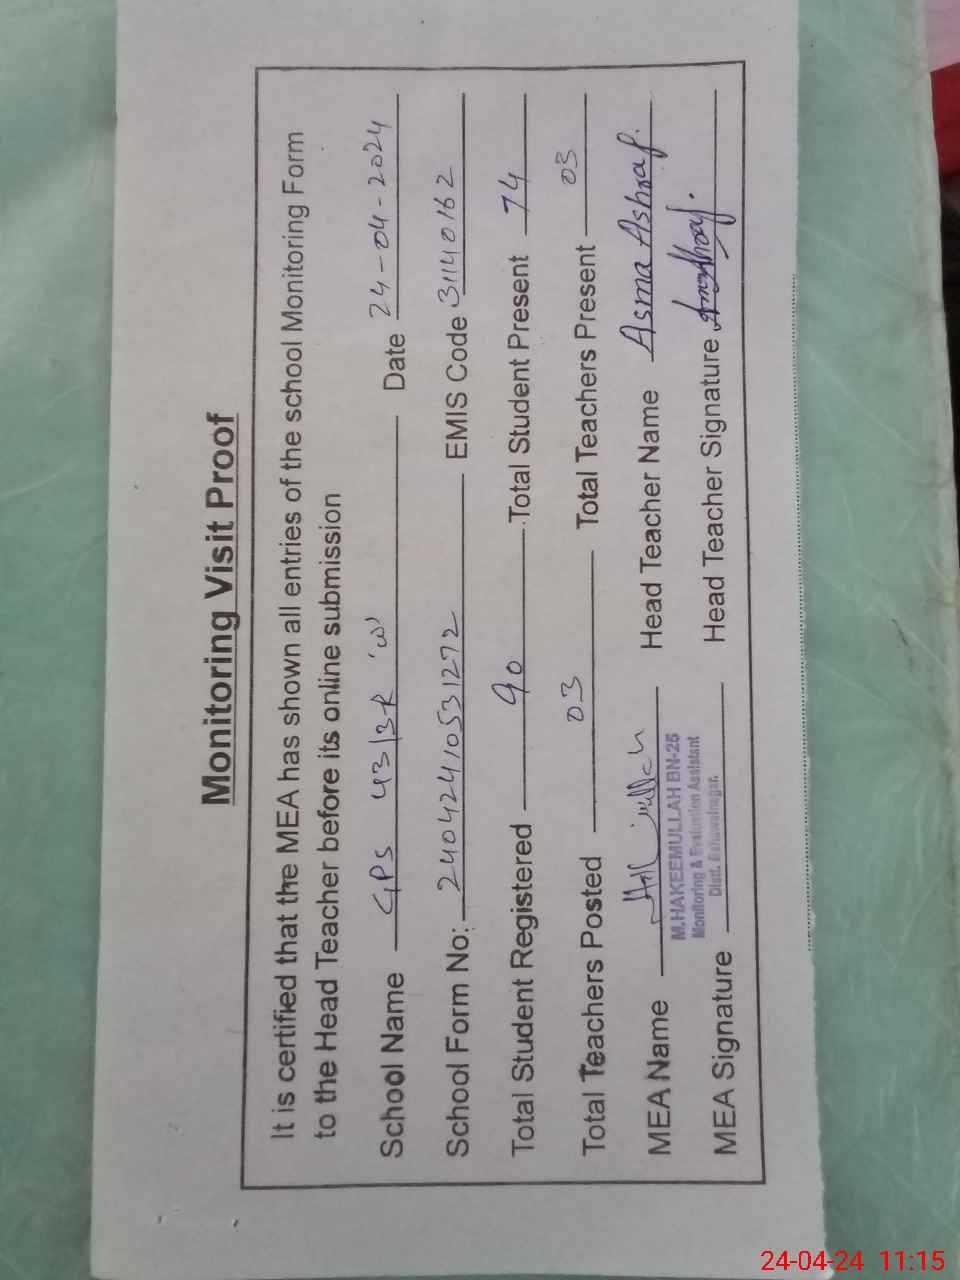 Monitoring Visit Proof
It is certified that the MEA has shown all entries of the school Monitoring Form
to the Head Teacher before its online submission
School Name GPS 43/3R 'W' Date 24-04-2024
School Form No: 24042410531272 EMIS Code 31140162
Total Student Registered 90 Total Student Present 74
Total Teachers Posted 03 Total Teachers Present 03
MEA Name Head Teacher Name Asma Ashraf.
M.HAKEEMULLAH BN-25
Monitoring & Evaluation Assistant
Distt. Bahawalnagar.
MEA Signature Head Teacher Signature
24-04-24 11:15